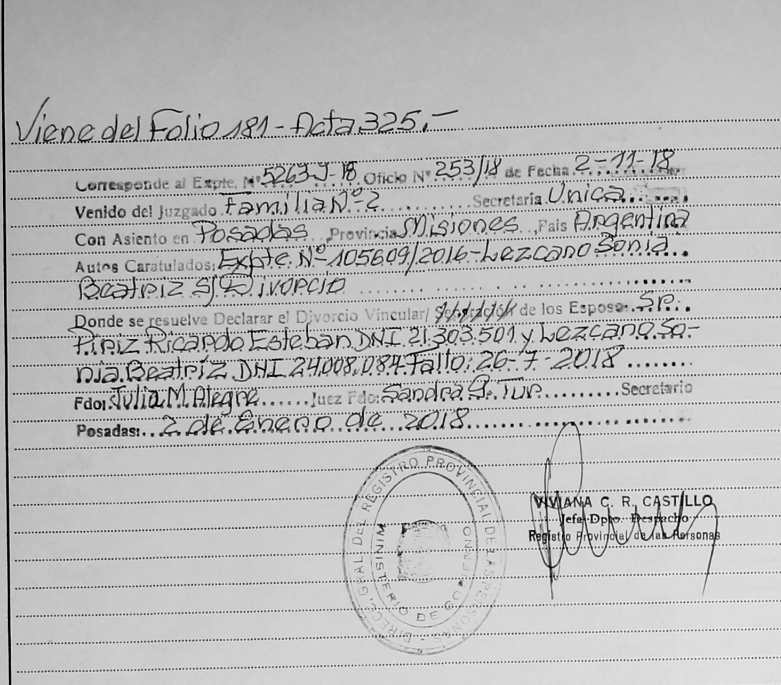 Viene del Folio 181 - Acta 325.-
Corresponde al Expte. Nº 5263-J-18 Oficio Nº 253/18 de Fecha 2-11-18
Venido del Juzgado Familia Nº 2 Secretaria Unica
Con Asiento en Posadas Provincia Misiones País Argentina
Autos Caratulados: Expte. Nº 105609/2016-Lezcano Sonia
Beatriz S/ Divorcio
Donde se resuelve Declarar el Divorcio Vincular/ de los Esposos Sr.
Piriz Ricardo Esteban DNI. 21.303.501 y Lezcano So-
nia Beatriz DNI 24.008.084 Fallo: 26-7-2018
Fdo: Julia M. Alegre Juez Fdo: Sandra G. Tur Secretario
Posadas: 2 de Enero de 2018
DIREC. GRAL DEL REGISTRO PROVINCIAL DE LAS PERSONAS
MINISTERIO DE GOBIERNO
VIVIANA C. R. CASTILLO
Jefe Dpto. Despacho
Registro Provincial de las Personas